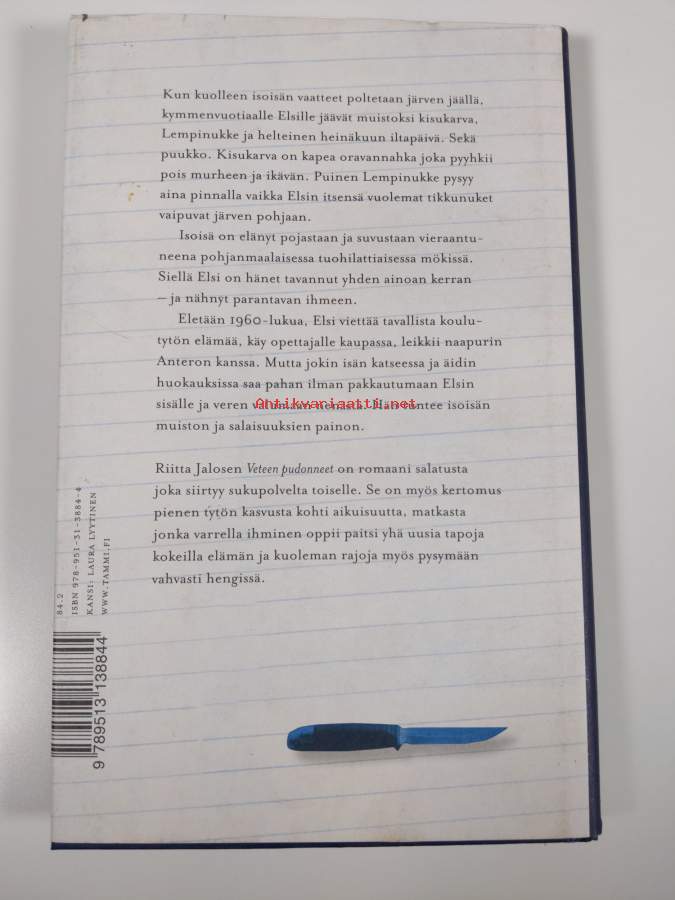 Kun kuolleen isoisän vaatteet poltetaan järven jäällä,
kymmenvuotiaalle Elsille jäävät muistoksi kisukarva,
Lempinukke ja helteinen heinäkuun iltapäivä. Sekä
puukko. Kisukarva on kapea oravannahka joka pyyhkii
pois murheen ja ikävän. Puinen Lempinukke pysyy
aina pinnalla vaikka Elsin itsensä vuolemat tikkunuket
vaipuvat järven pohjaan.
Isoisä on elänyt pojastaan ja suvustaan vieraantu-
neena pohjanmaalaisessa tuohilattiaisessa mökissä.
Siellä Elsi on hänet tavannut yhden ainoan kerran
– ja nähnyt parantavan ihmeen.
Eletään 1960-lukua, Elsi viettää tavallista koulu-
tytön elämää, käy opettajalle kaupassa, leikkii naapurin
Anteron kanssa. Mutta jokin isän katseessa ja äidin
huokauksissa saa pahan ilman pakkautumaan Elsin
sisälle ja veren nenästä. Hän tuntee isoisän
Antikvariaatti.net
muiston ja salaisuuksien painon.
Riitta Jalosen Veteen pudonneet on romaani salatusta
joka siirtyy sukupolvelta toiselle. Se on myös kertomus
pienen tytön kasvusta kohti aikuisuutta, matkasta
jonka varrella ihminen oppii paitsi yhä uusia tapoja
kokeilla elämän ja kuoleman rajoja myös pysymään
vahvasti hengissä.
84.2
ISBN 978-951-31-3884-4
KANSI: LAURA LYYTINEN
WWW.TAMMI.FI
9 789513 138844